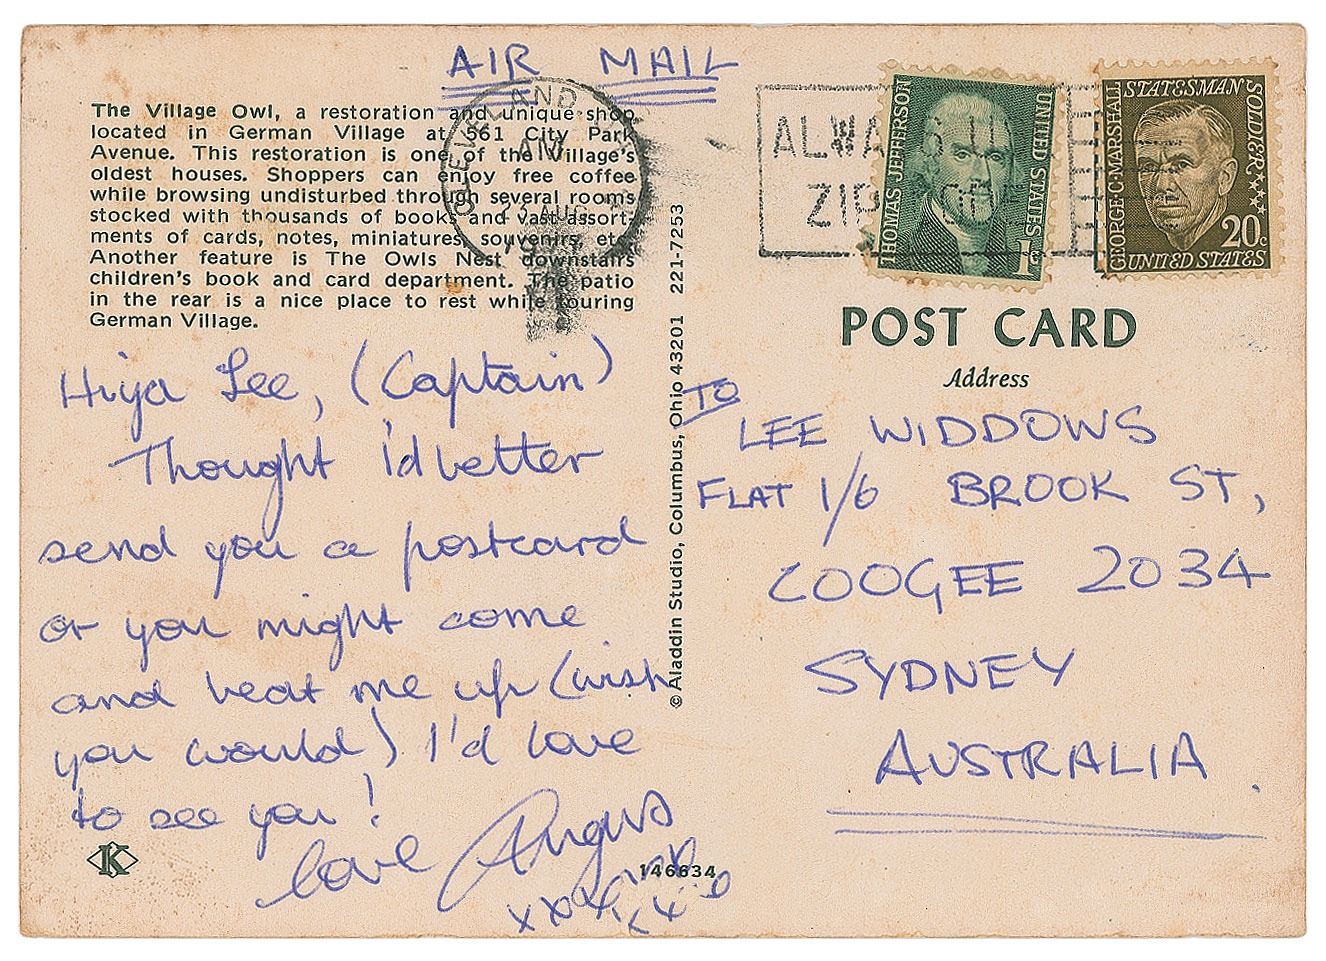 AIR MAIL
The Village Owl, a restoration and unique shop
located in German Village at 561 City Park
Avenue. This restoration is one of the Village's
oldest houses. Shoppers can enjoy free coffee
while browsing undisturbed through several rooms
stocked with thousands of books and vast assort-
ments of cards, notes, miniatures, souvenirs, etc.
Another feature is The Owls Nest downstairs
children's book and card department. The patio
in the rear is a nice place to rest while touring
German Village.
CLEVELAND
AM
Hiya Lee, (Captain)
Thought I'd better
send you a postcard
or you might come
and beat me up (wish
you would) I'd love
to see you!
love Angus
K
146634
© Aladdin Studio, Columbus, Ohio 43201 221-7253
ALWAYS U
ZIP CO
THOMAS JEFFERSON
UNITED STATES
1c
GEORGE C. MARSHALL
STATESMAN SOLDIER
20c
UNITED STATES
POST CARD
Address
TO
LEE WIDDOWS
FLAT 1/6 BROOK ST,
COOGEE 2034
SYDNEY
AUSTRALIA.